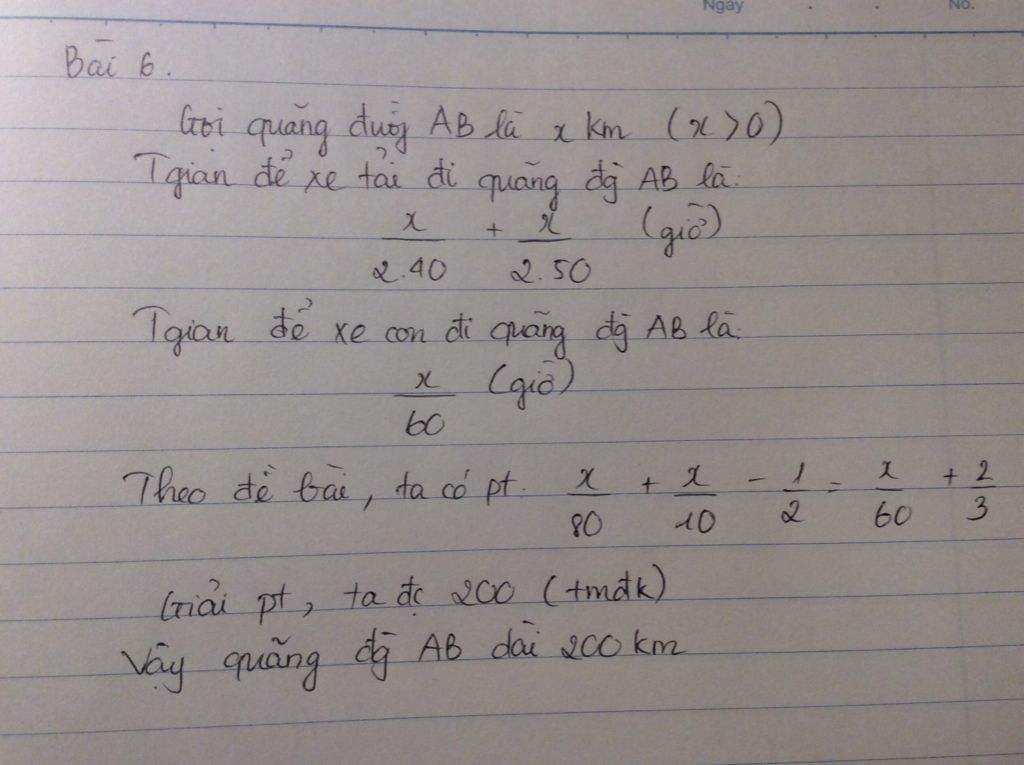 Ngày No.
Bài 6.
Gọi quãng đường AB là x km (x>0)
Tgian để xe tải đi quãng đg AB là:
x/2.40 + x/2.50 (giờ)
Tgian để xe con đi quãng đg AB là:
x/60 (giờ)
Theo đề bài, ta có pt: x/80 + x/10 - 1/2 = x/60 + 2/3
Giải pt, ta đc 200 (tmđk)
Vậy quãng đg AB dài 200 km